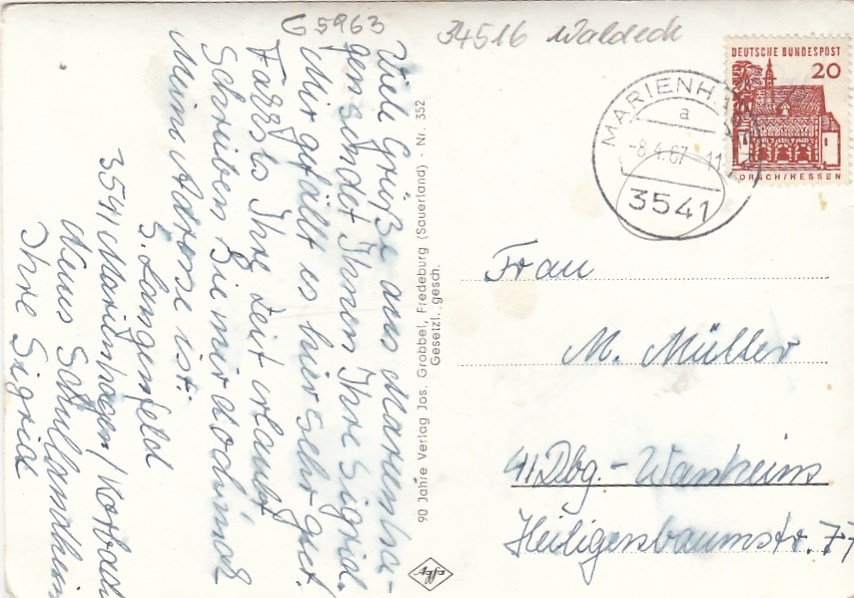 G 5963
34516 Waldeck
DEUTSCHE BUNDESPOST
20
LORSCH/HESSEN
MARIENH
a
-8.4.67-11
3541
Viele Grüße aus Marienha-
gen sendet Ihnen Ihre Sigrid.
Mir gefällt es hier sehr gut!
Falls es Ihre Zeit erlaubt
Schreiben Sie mir doch mal
Meine Adresse ist:
S. Langenfeld
3541 Marienhagen / Korbach
Haus Schullandheim
Ihre Sigrid
90 Jahre Verlag Jos. Grobbel, Fredeburg (Sauerland) - Nr. 352
Gesetzl. gesch.
Frau
M. Müller
41 Dbg. - Wanheim
Heiligenbaumstr. 77